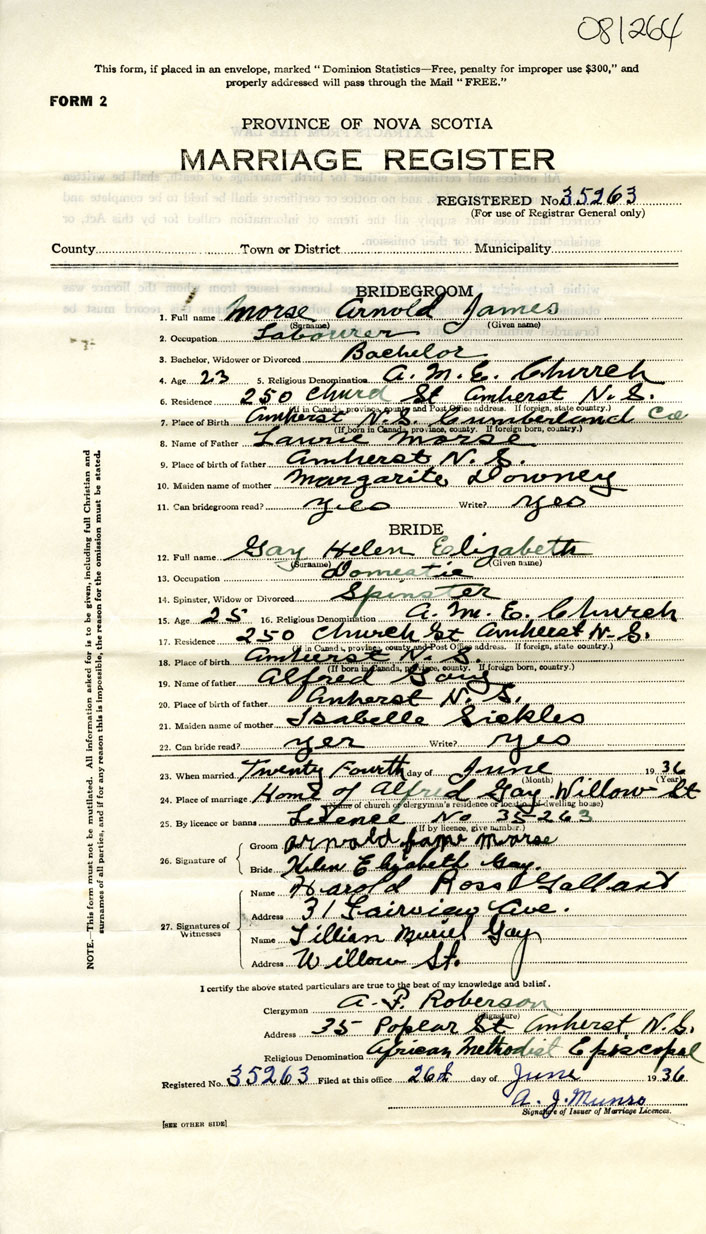 081264
This form, if placed in an envelope, marked "Dominion Statistics—Free, penalty for improper use $300," and
properly addressed will pass through the Mail "FREE."
FORM 2
PROVINCE OF NOVA SCOTIA
MARRIAGE REGISTER
REGISTERED No. 35263
(For use of Registrar General only)
County Town or District Municipality
BRIDEGROOM
1. Full name Morse Arnold James
(Surname) (Given name)
2. Occupation Labourer
3. Bachelor, Widower or Divorced Bachelor
4. Age 23 5. Religious Denomination A. M. E. Church
6. Residence 250 Church St Amherst N.S.
(If in Canada, province, county and Post Office address. If foreign, state country.)
7. Place of Birth Amherst N.S. Cumberland Co
(If born in Canada, province, county. If foreign born, country.)
8. Name of Father Laurie Morse
9. Place of birth of father Amherst N.S.
10. Maiden name of mother Margarite Downey
11. Can bridegroom read? Yes Write? Yes
BRIDE
12. Full name Gay Helen Elizabeth
(Surname) (Given name)
13. Occupation Domestic
14. Spinster, Widow or Divorced Spinster
15. Age 25 16. Religious Denomination A. M. E. Church
17. Residence 250 Church St Amherst N.S.
(If in Canada, province, county and Post Office address. If foreign, state country.)
18. Place of birth Amherst N.S.
(If born in Canada, province, county. If foreign born, country.)
19. Name of father Alfred Gay
20. Place of birth of father Amherst N.S.
21. Maiden name of mother Isabelle Sickles
22. Can bride read? yes Write? yes
23. When married Twenty Fourth day of June 1936
(Month) (Year)
24. Place of marriage Home of Alfred Gay Willow St
(Name of church or clergyman's residence or location of dwelling house)
25. By licence or banns Licence No 35263
(If by licence, give number.)
26. Signature of Groom Arnold James Morse
Bride Helen Elizabeth Gay.
27. Signatures of Witnesses Name Harold Ross Gallant
Address 31 Fairview Ave.
Name Lillian Muriel Gay
Address Willow St.
I certify the above stated particulars are true to the best of my knowledge and belief.
Clergyman A. P. Roberson
(Signature)
Address 35 Poplar St Amherst N.S.
Religious Denomination African Methodist Episcopal
Registered No. 35263 Filed at this office 26th day of June 1936
A. J. Munro
Signature of Issuer of Marriage Licences.
[SEE OTHER SIDE]
NOTE.—This form must not be mutilated. All information asked for is to be given, including full Christian and
surnames of all parties, and if for any reason this is impossible, the reason for the omission must be stated.